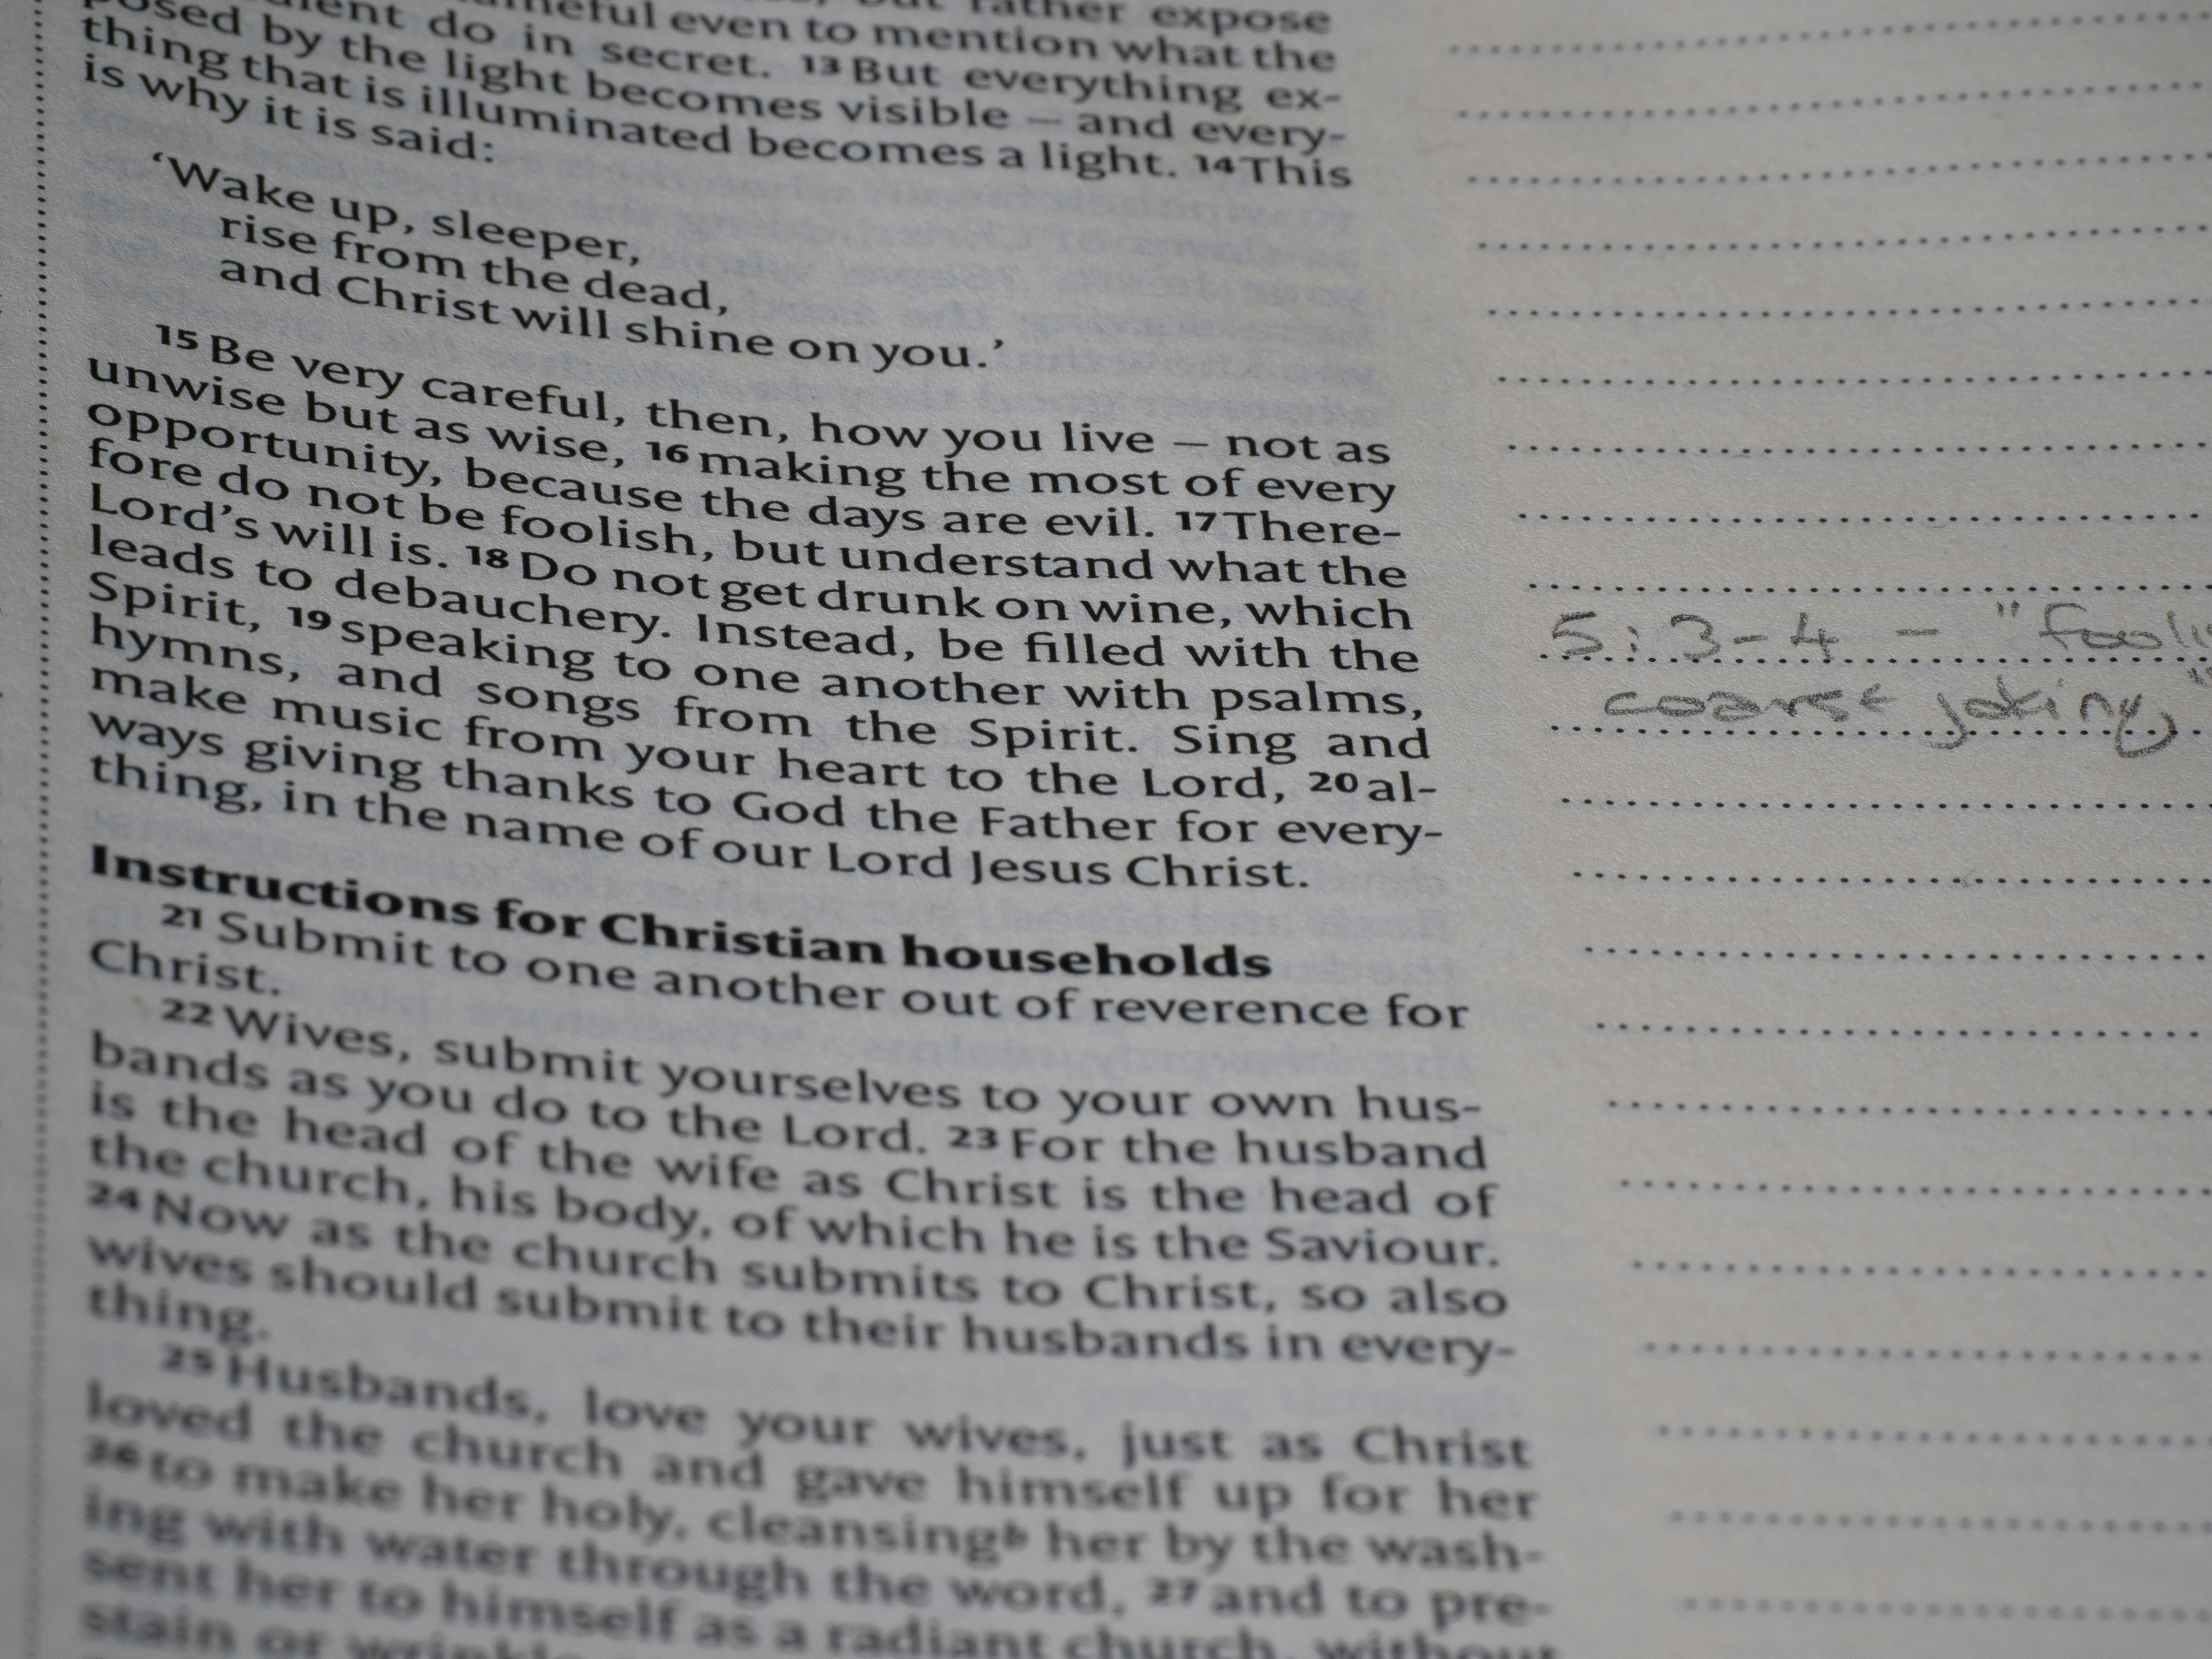 rather expose
do in secret. ¹³But everything ex-
even to mention what the
posed by the light becomes visible – and every-
thing that is illuminated becomes a light. ¹⁴This
is why it is said:
‘Wake up, sleeper,
rise from the dead,
and Christ will shine on you.’
¹⁵Be very careful, then, how you live – not as
unwise but as wise, ¹⁶making the most of every
opportunity, because the days are evil. ¹⁷There-
fore do not be foolish, but understand what the
Lord’s will is. ¹⁸Do not get drunk on wine, which
leads to debauchery. Instead, be filled with the
Spirit, ¹⁹speaking to one another with psalms,
hymns, and songs from the Spirit. Sing and
make music from your heart to the Lord, ²⁰al-
ways giving thanks to God the Father for every-
thing, in the name of our Lord Jesus Christ.
Instructions for Christian households
²¹Submit to one another out of reverence for
Christ.
²²Wives, submit yourselves to your own hus-
bands as you do to the Lord. ²³For the husband
is the head of the wife as Christ is the head of
the church, his body, of which he is the Saviour.
²⁴Now as the church submits to Christ, so also
wives should submit to their husbands in every-
thing.
²⁵Husbands, love your wives, just as Christ
loved the church and gave himself up for her
²⁶to make her holy, cleansingᵇ her by the wash-
ing with water through the word, ²⁷and to pre-
sent her to himself as a radiant church, without
stain or
5:3-4 - "
coarse joking"